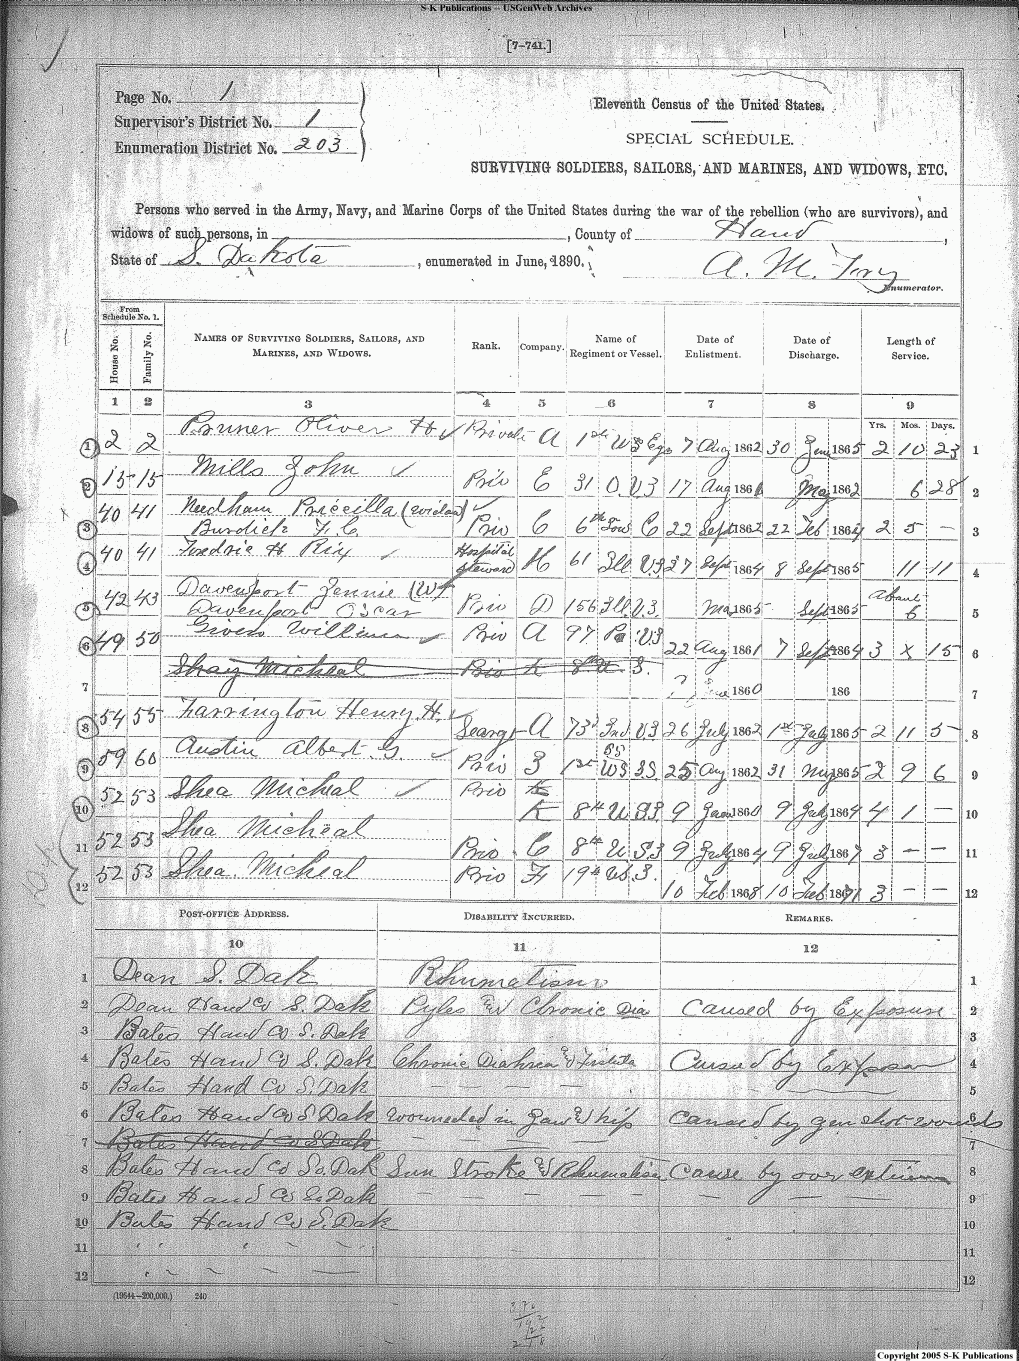 S-K Publications -- USGenWeb Archives
[7-741.]
Page No. 1
Supervisor's District No. 1
Enumeration District No. 203
Eleventh Census of the United States.
SPECIAL SCHEDULE.
SURVIVING SOLDIERS, SAILORS, AND MARINES, AND WIDOWS, ETC.
Persons who served in the Army, Navy, and Marine Corps of the United States during the war of the rebellion (who are survivors), and
widows of such persons, in , County of Hand ,
State of S. Dakota , enumerated in June, 1890. A. M.
Enumerator.
From Schedule No. 1.
House No. Family No. NAMES OF SURVIVING SOLDIERS, SAILORS, AND MARINES, AND WIDOWS. Rank. Company. Name of Regiment or Vessel. Date of Enlistment. Date of Discharge. Length of Service.
1 2 3 4 5 6 7 8 9
Yrs. Mos. Days.
1 2 2 Pruner Oliver H Private A 1st 7 Aug 1862 30 June 1865 2 10 23 1
2 15 15 Mills John Priv E 31 O. V 3 17 Aug 1861 May 1862 6 28 2
3 40 41 Needham Priccilla (widow)
Burdick F. C. Priv C 6th Iow C 22 Sept 1862 22 Feb 1864 2 5 — 3
4 40 41 Fredric H Rix Hospital Steward H 61 Ill V3 27 Sept 1864 8 Sept 1865 11 11 4
5 42 43 Davenport Jennie (W)
Davenport Oscar Priv D 156 Ill V.3. Ma 1865 Sept 1865 about 6 5
6 49 50 Givens William Priv A 97 Pa V3 22 Aug 1861 7 Sept 1864 3 x 15 6
7 Shay Micheal Priv K 8th S. ? June 1860 186 7
8 54 55 Farrington Henry H. Searg A 73d Ind V3 26 July 1862 1st July 1865 2 11 5 8
9 59 60 Austin Albert G. Priv 1st WS SS 25 Aug 1862 31 May 1865 2 9 6 9
10 52 53 Shea Micheal Priv K 8th U S3 9 June 1860 9 July 1864 4 1 — 10
11 52 53 Shea Micheal Priv C 8th U S3 9 July 1864 9 July 1867 3 — — 11
12 52 53 Shea Micheal Priv F 19th US 3. 10 Feb 1868 10 Feb 1871 3 — — 12
POST-OFFICE ADDRESS. DISABILITY INCURRED. REMARKS.
10 11 12
1 Dean S. Dak Rhumatism 1
2 Dean Hand Co S. Dak Pyles & Chronic Dia Caused by Exposure 2
3 Bates Hand Co S. Dak 3
4 Bates Hand Co S. Dak Chronic Diahrea & Fistula Caused by Exposur 4
5 Bates Hand Co S. Dak — — — 5
6 Bates Hand Co S Dak wounded in Jaw & hip Caused by gun shot wounds 6
7 Bates Hand Co S Dak 7
8 Bates Hand Co So. Dak Sun Stroke & Rhumatism Cause by over 8
9 Bates Hand Co S. Dak — — — 9
10 Bates Hand Co S. Dak 10
11 11
12 12
(19644—200,000.) 240
Copyright 2005 S-K Publications